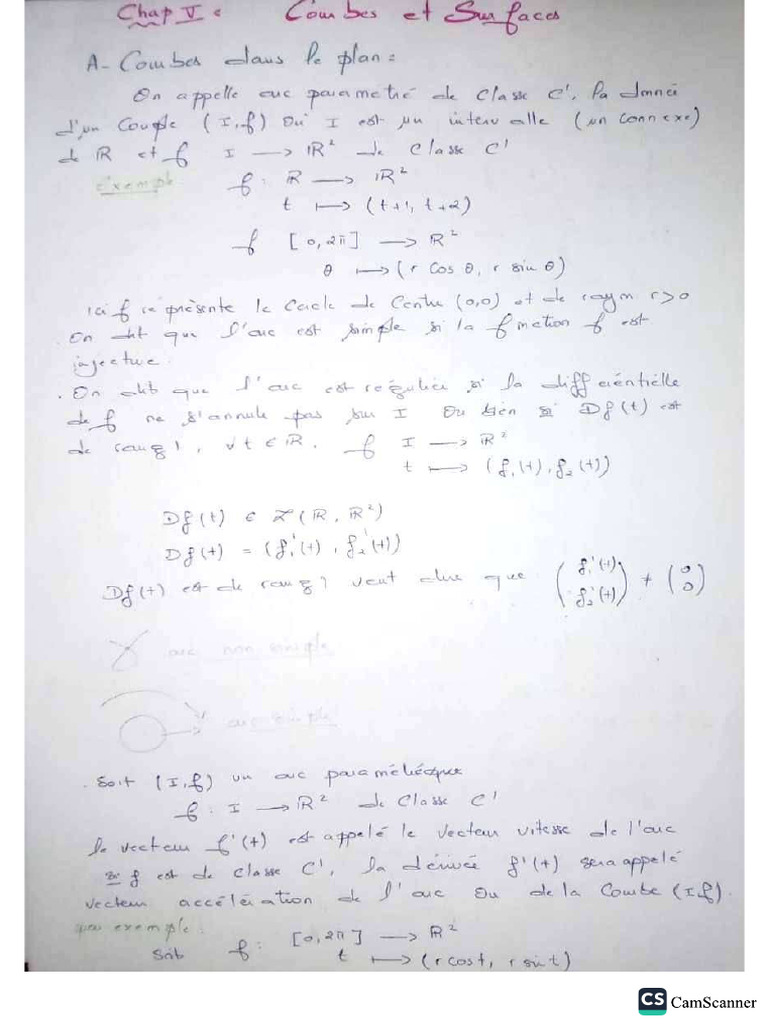 Chap V : Courbes et Surfaces
A- Courbes dans le plan :
On appelle arc parametré de classe C¹, la donnée
d'un Couple (I, f) où I est un intervalle (un connexe)
de ℝ et f I → ℝ² de classe C¹
exemple f : ℝ → ℝ²
t ↦ (t+1, t+2)
f [0, 2π] → ℝ²
θ ↦ (r cos θ, r sin θ)
ici f représente le Cercle de Centre (0,0) et de rayon r>0
. On dit que l'arc est simple si la fonction f est
injective.
. On dit que l'arc est régulier si la différentielle
de f ne s'annule pas sur I Ou bien si Df(t) est
de rang 1, ∀t ∈ ℝ. f I → ℝ²
t ↦ (f₁(t), f₂(t))
Df(t) ∈ ℒ(ℝ, ℝ²)
Df(t) = (f₁'(t), f₂'(t))
Df(t) est de rang 1 veut dire que (f₁'(t) f₂'(t)) ≠ (0 0)
arc non simple
arc simple
. Soit (I, f) un arc paramétrique
f : I → ℝ² de classe C¹
le vecteur f'(t) est appelé le vecteur vitesse de l'arc
si f est de classe C¹, la dérivée f'(t) sera appelé
vecteur accélération de l'arc Ou de la Courbe (I, f).
par exemple :
Soit f : [0, 2π] → ℝ²
t ↦ (r cos t, r sin t)
CS CamScanner